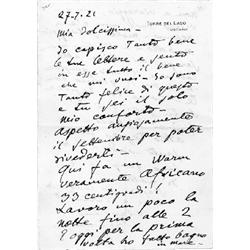 27-7-21
TORRE DEL LAGO
TOSCANA
Mia dolcissima -
Io capisco tanto bene
le tue lettere e sento
in esse tutto il bene
che mi vuoi - Io sono
tanto felice di questo
e tu sei il solo
mio conforto -
aspetto ansiosamente
il settembre per poter
rivederti -
Qui fa un Warm
veramente africano
33 centigradi!
Lavoro un poco la
notte fino alle 2
E oggi per la prima
volta ho fatto bagno
mare -